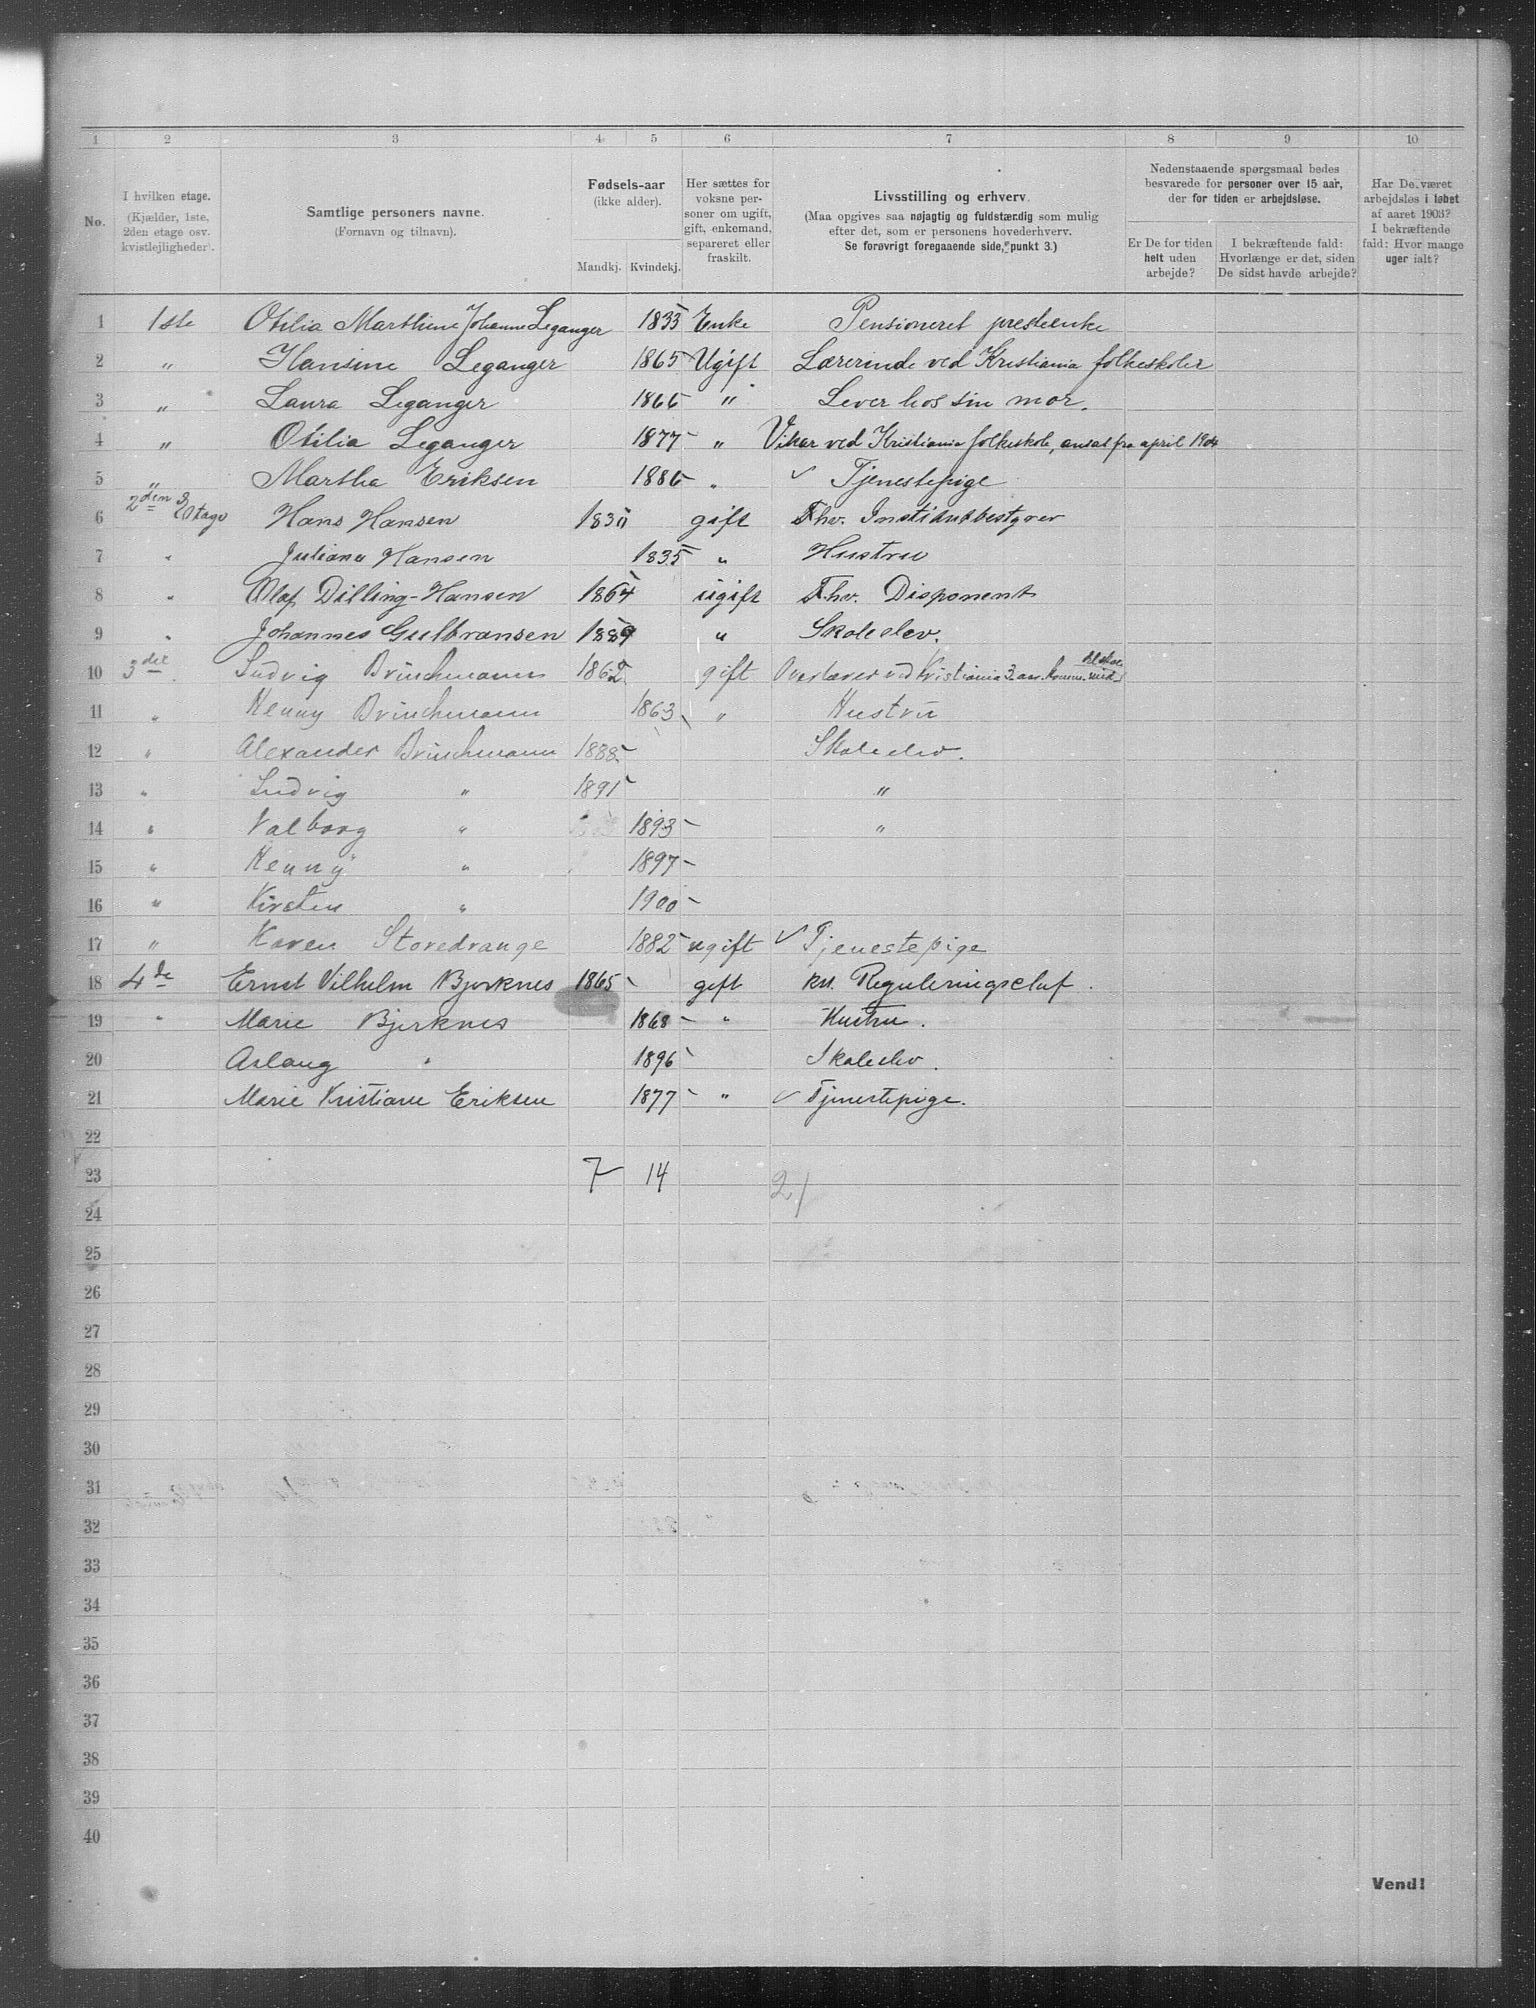 1 2 3 4 5 6 7 8 9 10
No. I hvilken etage. (Kjælder, 1ste, 2den etage osv. kvistlejligheder). Samtlige personers navne. (Fornavn og tilnavn). Fødsels-aar (ikke alder). Mandkj. Kvindekj. Her sættes for voksne personer om ugift, gift, enkemand, separeret eller fraskilt. Livsstilling og erhverv. (Maa opgives saa nøjagtig og fuldstændig som mulig efter det, som er personens hovederhverv. Se forøvrigt foregaaende side, punkt 3.) Nedenstaaende spørgsmaal bedes besvarede for personer over 15 aar, der for tiden er arbejdsløse. Er De for tiden helt uden arbejde? I bekræftende fald: Hvorlænge er det, siden De sidst havde arbejde? Har De været arbejdsløs i løbet af aaret 1903? I bekræftende fald: Hvor mange uger ialt?
1 1ste Otilia Marthine Johanne Leganger 1833 Enke Pensioneret presteenke
2 " Hansine Leganger 1865 Ugift Lærerinde ved Kristiania folkeskoler
3 " Laura Leganger 1866 " Lever hos sin mor.
4 " Otilia Leganger 1877 " Vikar ved Kristiania folkeskole, ansat fra april 1904
5 " Martha Eriksen 1886 " ✓ Tjenestepige
6 2den Etage Hans Hansen gift Fhv. Institutbestyrer
7 " Juliane Hansen 1835 " Hustru
8 " Olaf Dilling-Hansen 1864 ugift Fhv. Disponent
9 " Johannes Gulbransen 1889 " Skoleelev.
10 3die Ludvig Brinchmann 1862 gift Overlærer ved Kristiania
11 " Henny Brinchmann 1863 " Hustru
12 " Alexander Brinchmann 1888 Skoleelev.
13 " Ludvig " 1891 "
14 " Valborg " 1893 "
15 " Henny " 1897
16 " Kirsten " 1900
17 " Karen Storedrange 1882 ugift ✓ Tjenestepige
18 4de Ernst Vilhelm Bjerknes 1865 gift Reguleringschef.
19 " Marie Bjerknes 1868 " Hustru.
20 Aslaug " 1896 Skoleelev.
21 Marie Kristiane Eriksen 1877 " ✓ Tjenestepige.
22
23 7 14 21
24
25
26
27
28
29
30
31
32
33
34
35
36
37
38
39
40
Vend!